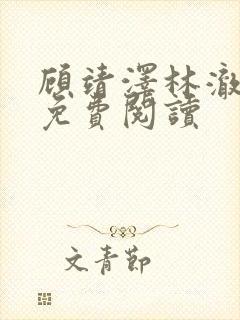 顾靖澤林澈
免費閱讀
文青節